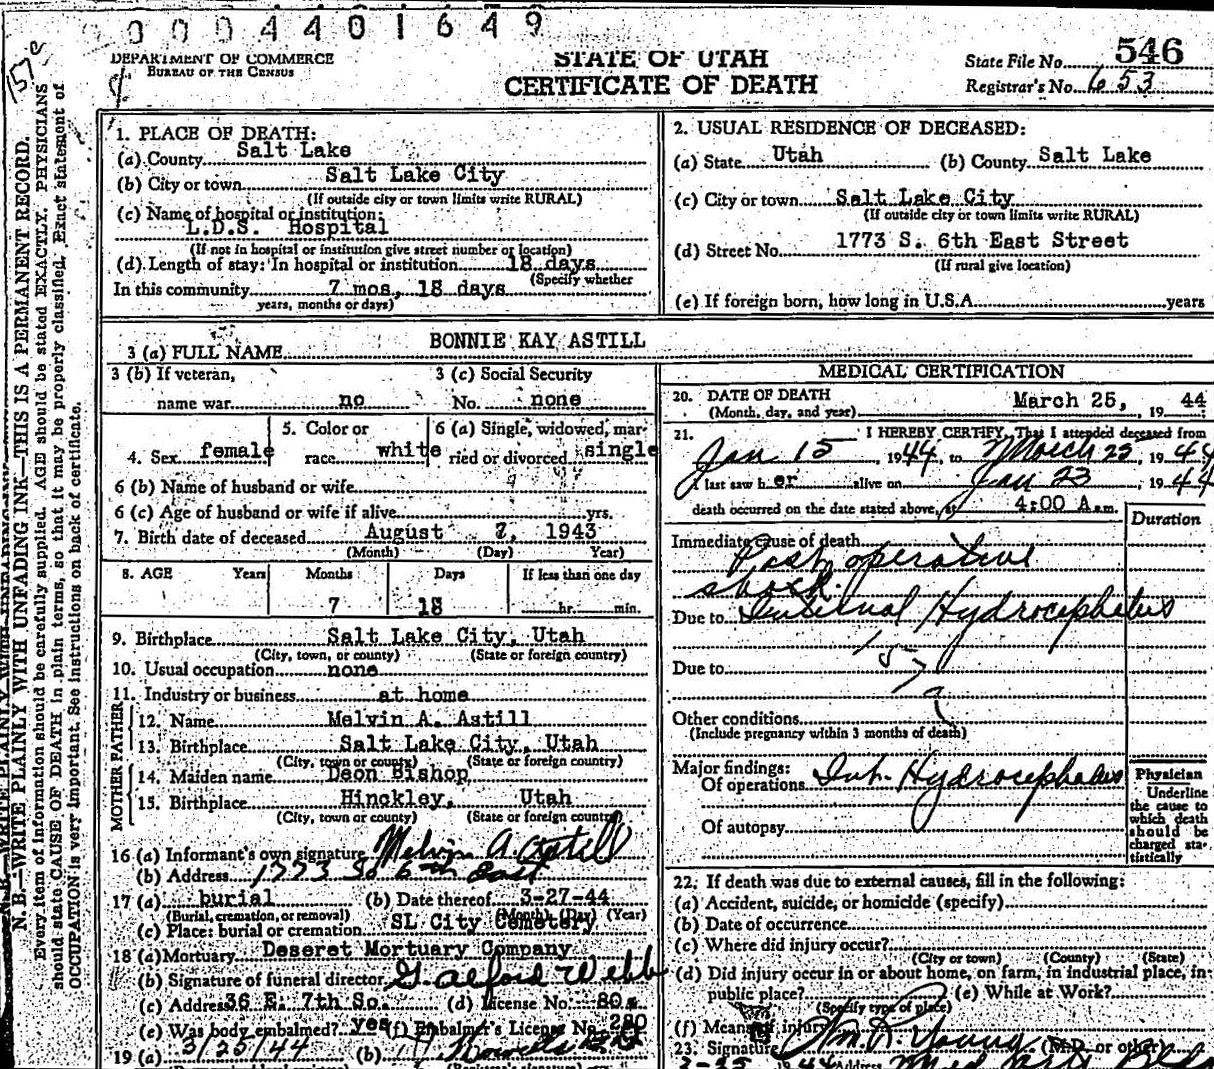 0004401649
157 e
DEPARTMENT OF COMMERCE
BUREAU OF THE CENSUS
STATE OF UTAH
CERTIFICATE OF DEATH
State File No. 546
Registrar's No. 653
N. B.—WRITE PLAINLY WITH UNFADING INK—THIS IS A PERMANENT RECORD.
Every item of information should be carefully supplied. AGE should be stated EXACTLY. PHYSICIANS
should state CAUSE OF DEATH in plain terms, so that it may be properly classified. Exact statement of
OCCUPATION is very important. See instructions on back of certificate.
1. PLACE OF DEATH:
(a) County Salt Lake
(b) City or town Salt Lake City
(If outside city or town limits write RURAL)
(c) Name of hospital or institution:
L.D.S. Hospital
(If not in hospital or institution give street number or location)
(d) Length of stay: In hospital or institution 18 days
(Specify whether
In this community 7 mos, 18 days
years, months or days)
2. USUAL RESIDENCE OF DECEASED:
(a) State Utah (b) County Salt Lake
(c) City or town Salt Lake City
(If outside city or town limits write RURAL)
(d) Street No. 1773 S. 6th East Street
(If rural give location)
(e) If foreign born, how long in U.S.A. years
3 (a) FULL NAME BONNIE KAY ASTILL
3 (b) If veteran,
name war no
3 (c) Social Security
No. none
4. Sex female
5. Color or
race white
6 (a) Single, widowed, mar-
ried or divorced single
6 (b) Name of husband or wife
6 (c) Age of husband or wife if alive yrs.
7. Birth date of deceased August 7, 1943
(Month) (Day) Year)
8. AGE Years Months Days If less than one day
7 18 hr. min.
9. Birthplace Salt Lake City, Utah
(City, town, or county) (State or foreign country)
10. Usual occupation none
11. Industry or business at home
FATHER
12. Name Melvin A. Astill
13. Birthplace Salt Lake City, Utah
(City, town or county) (State or foreign country)
MOTHER
14. Maiden name Deon Bishop
15. Birthplace Hinckley, Utah
(City, town or county) (State or foreign country)
16 (a) Informant's own signature Melvin A. Astill
(b) Address 1773 So 6th East
17 (a) burial (b) Date thereof 3-27-44
(Burial, cremation, or removal) (Month) (Day) (Year)
(c) Place: burial or cremation SL City Cemetery
18 (a) Mortuary Deseret Mortuary Company
(b) Signature of funeral director G. Alford Webb
(c) Address 36 E. 7th So. (d) License No. 80
(e) Was body embalmed? yes (f) Embalmer's License No. 280
19 (a) 3/25/44 (b)
MEDICAL CERTIFICATION
20. DATE OF DEATH
(Month, day, and year) March 25, 19 44
21. I HEREBY CERTIFY, That I attended deceased from
Jan 15, 1944, to March 23, 1944
I last saw her alive on Jan 23, 1944
death occurred on the date stated above, at 4:00 A.m.
Duration
Immediate cause of death
Post operative
shock.
Due to Internal Hydrocephalus
157
Due to
a
Other conditions
(Include pregnancy within 3 months of death)
Major findings:
Of operations Int. Hydrocephalus
Of autopsy
Physician
Underline
the cause to
which death
should be
charged sta-
tistically
22. If death was due to external causes, fill in the following:
(a) Accident, suicide, or homicide (specify)
(b) Date of occurrence
(c) Where did injury occur?
(City or town) (County) (State)
(d) Did injury occur in or about home, on farm, in industrial place, in
public place? (e) While at Work?
(Specify type of place)
(f) Means of injury
23. Signature Wm. R. Young (M.D. or other)
1944 Address